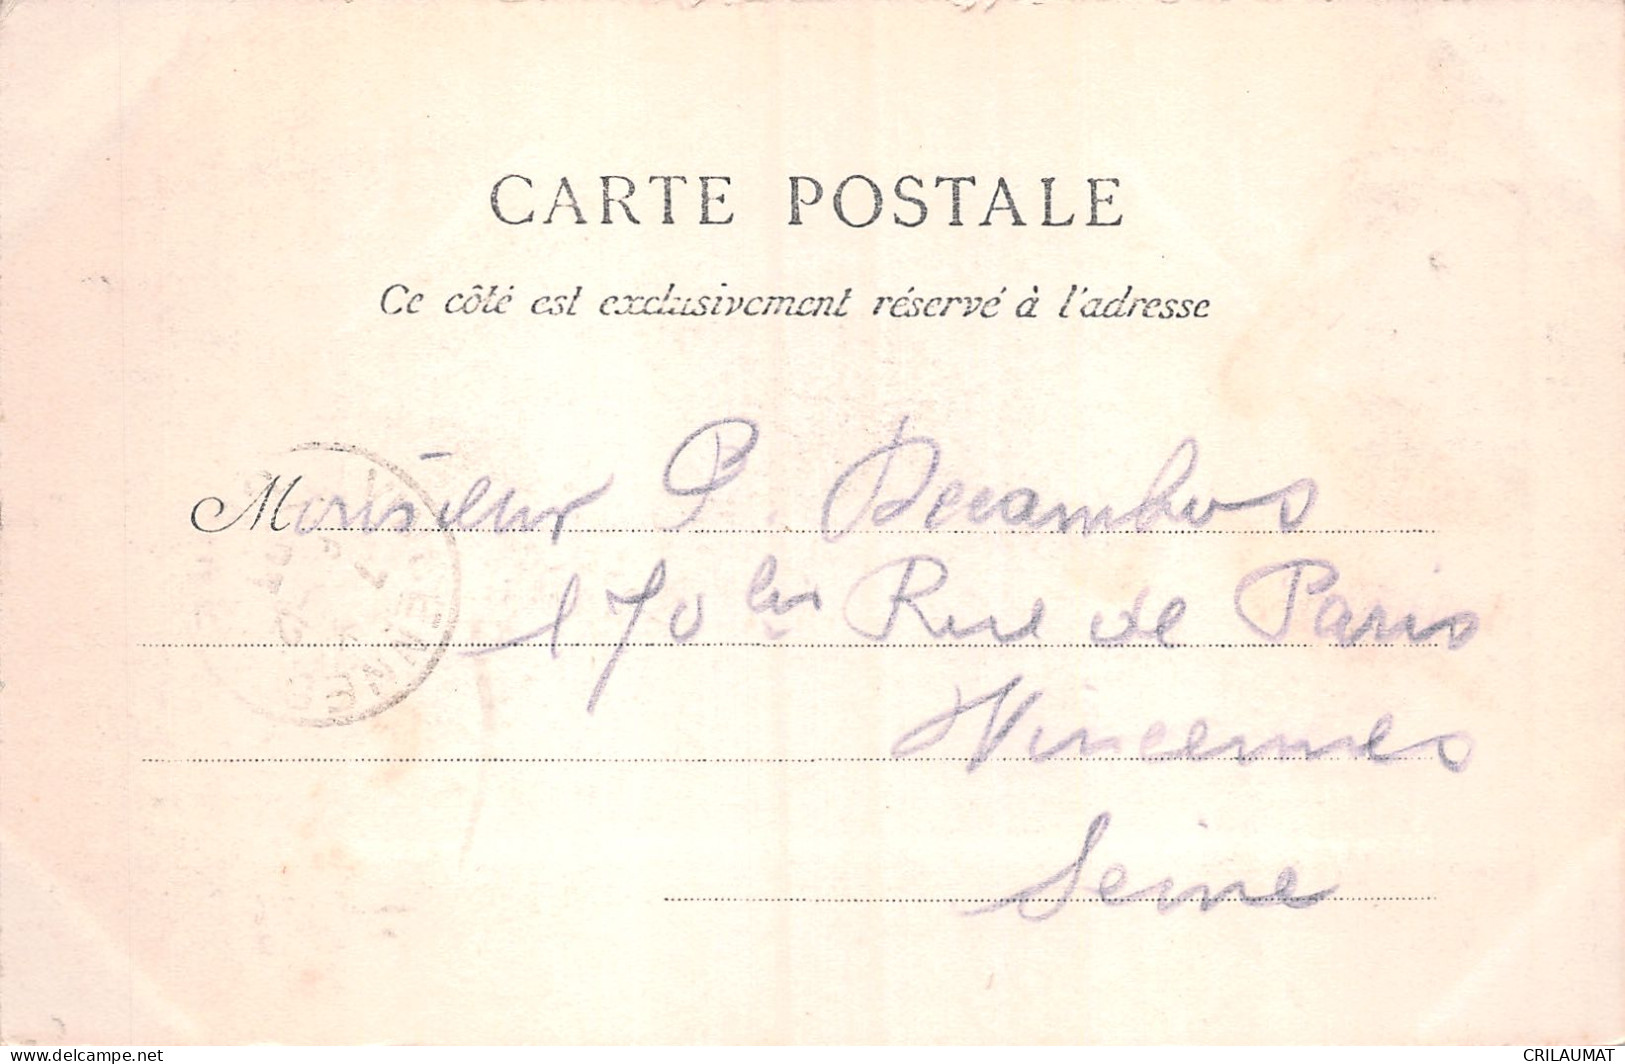 CARTE POSTALE
Ce côté est exclusivement réservé à l'adresse
Monsieur P. Decambos
170 bis Rue de Paris
Vincennes
Seine
VINCENNES
www.delcampe.net
CRILAUMAT